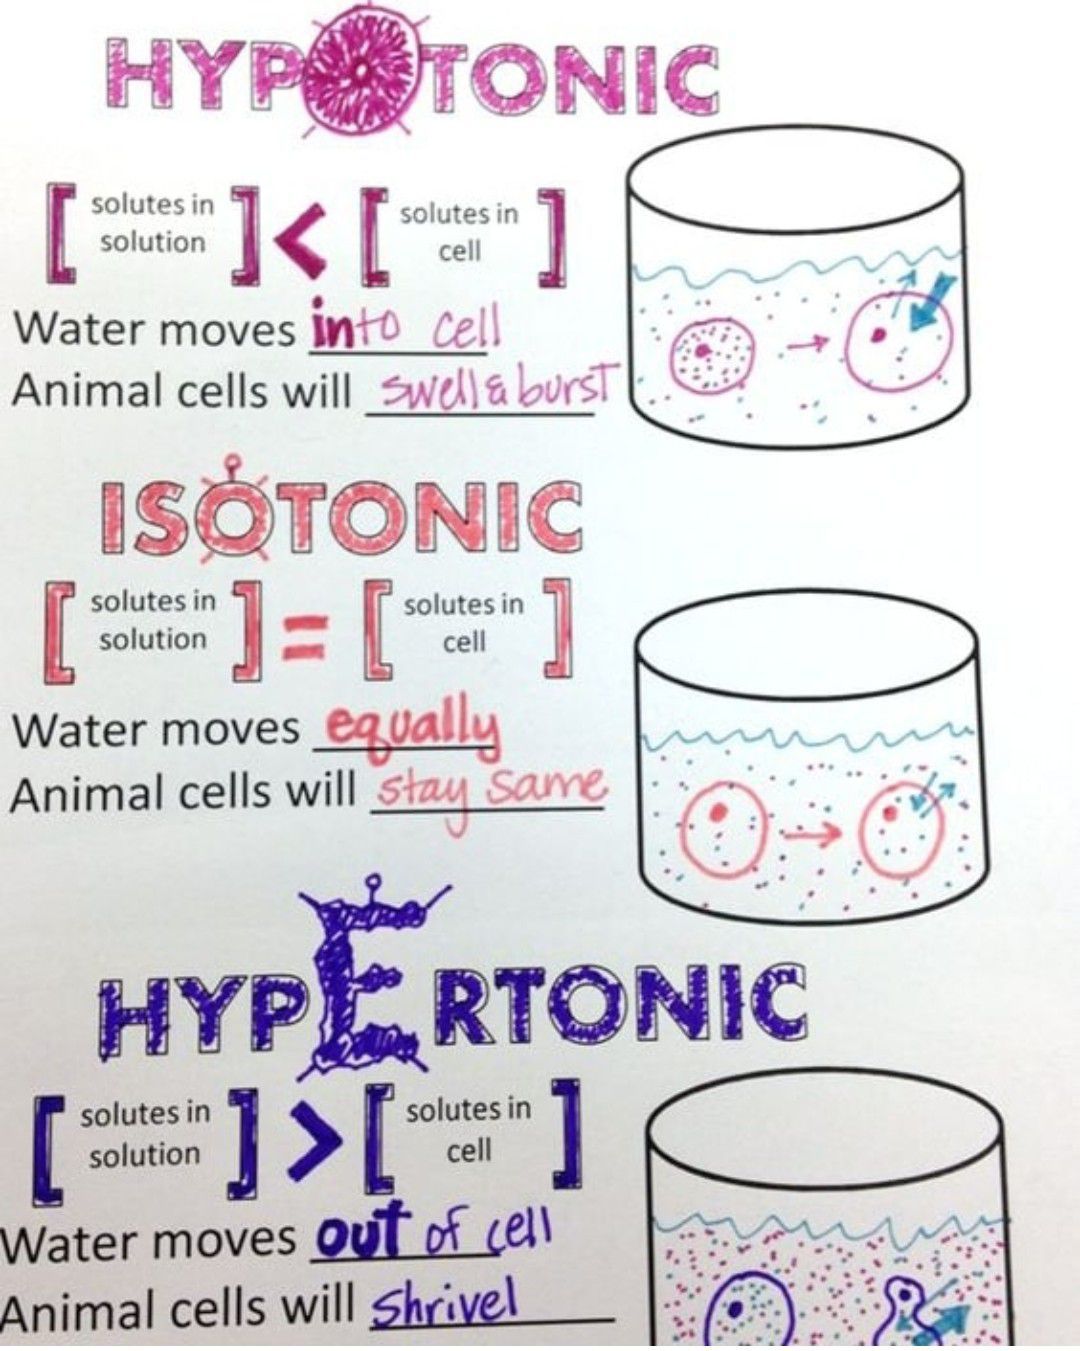 HYPOTONIC
[ solutes in solution ] < [ solutes in cell ]
Water moves into cell
Animal cells will swell & burst
ISOTONIC
[ solutes in solution ] = [ solutes in cell ]
Water moves equally
Animal cells will stay same
HYPERTONIC
[ solutes in solution ] > [ solutes in cell ]
Water moves out of cell
Animal cells will shrivel